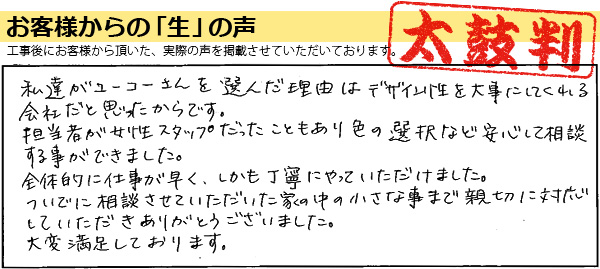 お客様からの「生」の声
工事後にお客様から頂いた、実際の声を掲載させていただいております。
太鼓判
私達がユーコーさんを選んだ理由はデザイン性を大事にしてくれる
会社だと思ったからです。
担当者が女性スタッフだったこともあり色の選択など安心して相談
する事ができました。
全体的に仕事が早く、しかも丁寧にやっていただけました。
ついでに相談させていただいた家の中の小さな事まで親切に対応
していただきありがとうございました。
大変満足しております。